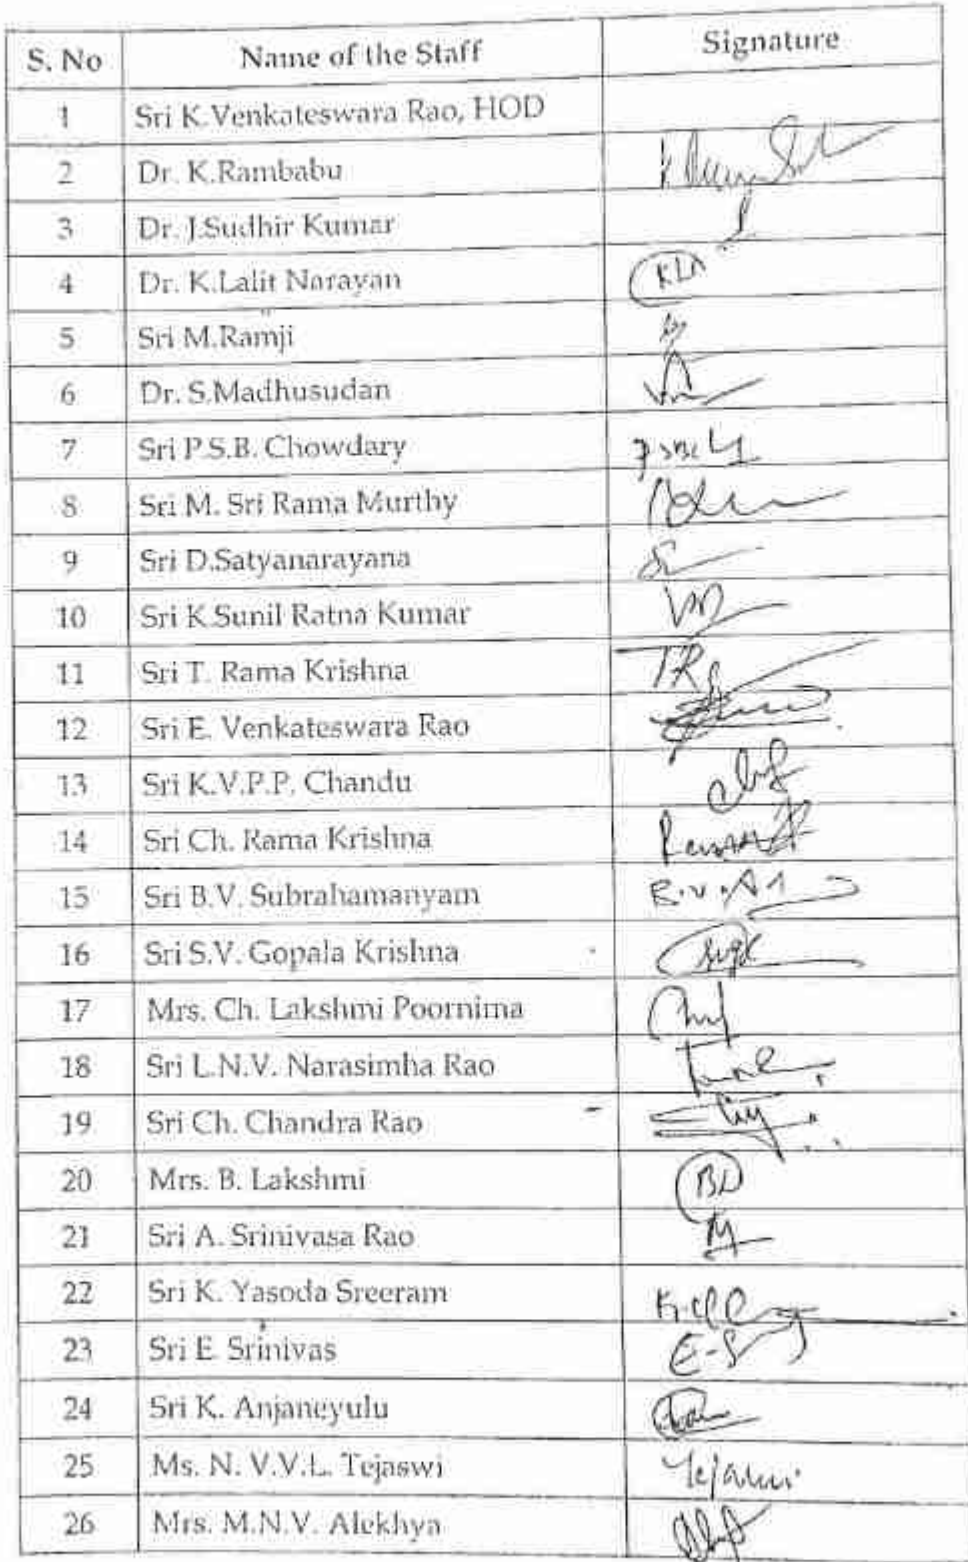 S. No Name of the Staff Signature
1 Sri K.Venkateswara Rao, HOD
2 Dr. K.Rambabu
3 Dr. J.Sudhir Kumar
4 Dr. K.Lalit Narayan KLN
5 Sri M.Ramji
6 Dr. S.Madhusudan
7 Sri P.S.B. Chowdary
8 Sri M. Sri Rama Murthy
9 Sri D.Satyanarayana
10 Sri K.Sunil Ratna Kumar
11 Sri T. Rama Krishna TR
12 Sri E. Venkateswara Rao
13 Sri K.V.P.P. Chandu
14 Sri Ch. Rama Krishna
15 Sri B.V. Subrahamanyam
16 Sri S.V. Gopala Krishna
17 Mrs. Ch. Lakshmi Poornima
18 Sri L.N.V. Narasimha Rao
19 Sri Ch. Chandra Rao
20 Mrs. B. Lakshmi BL
21 Sri A. Srinivasa Rao
22 Sri K. Yasoda Sreeram
23 Sri E. Srinivas
24 Sri K. Anjaneyulu
25 Ms. N. V.V.L. Tejaswi Tejaswi
26 Mrs. M.N.V. Alekhya